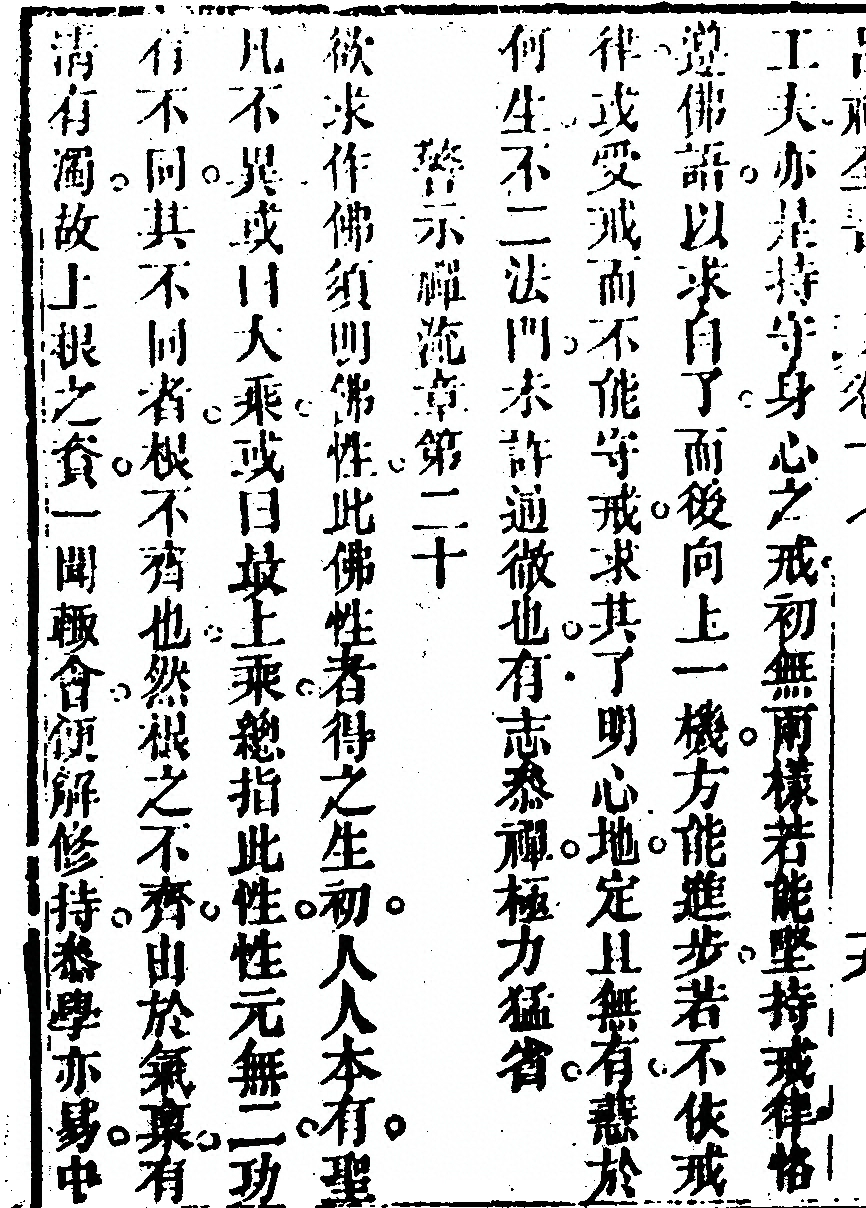 工夫亦是持守身心之戒初無兩樣若能堅持戒律恪
遵佛語以求自了而後向上一機方能進步若不依戒
律或受戒而不能守戒求其了明心地定且無有慧於
何生不二法門未許通微也有志叅禪極力猛省
警示禪流章第二十
欲求作佛須明佛性此佛性者得之生初人人本有聖
凡不異或曰大乘或曰最上乘總指此性性元無二功
有不同其不同者根不齊也然根之不齊由於氣稟有
清有濁故上根之資一聞輒會便解修持叅學亦易中